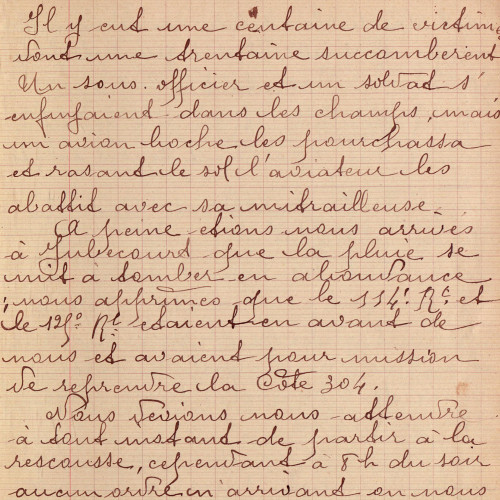 Il y eut une centaine de victimes
dont une trentaine succombèrent
Un sous-officier et un soldat s'
enfuyaient dans les champs, mais
un avion boche les pourchassa
et rasant le sol l'aviateur les
abattit avec sa mitrailleuse.
A peine étions nous arrivés
à Jubécourt que la pluie se
mit à tomber en abondance
; nous apprîmes que le 114e Rt et
le 125e Rt étaient en avant de
nous et avaient pour mission
de reprendre la Côte 304.
Nous devions nous attendre
à tout instant de partir à la
rescousse, cependant à 8h du soir
aucun ordre n'arrivant on nous